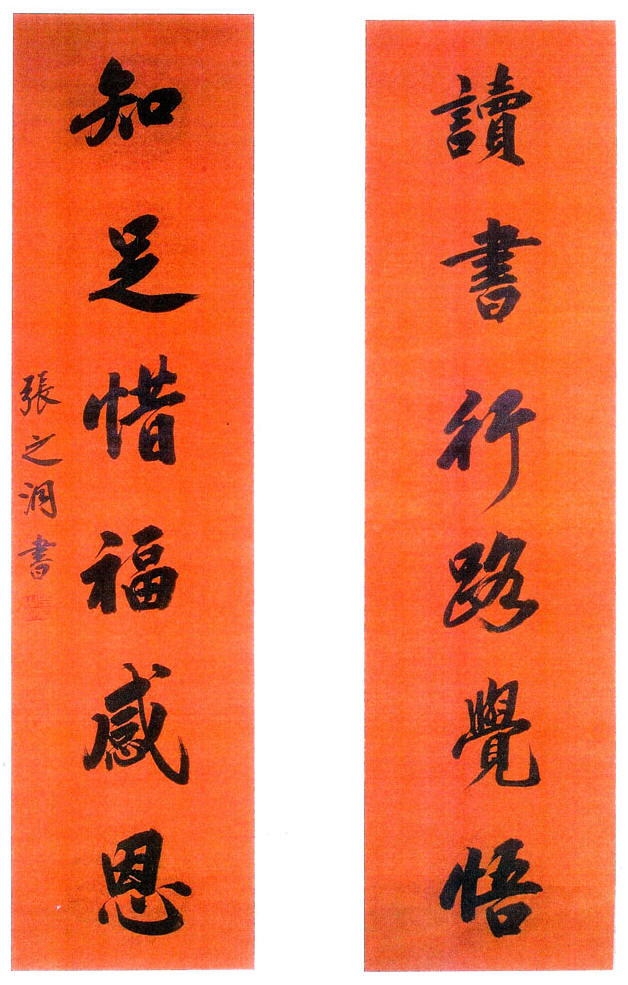 讀書行路覺悟
知足惜福感恩
張之洞書